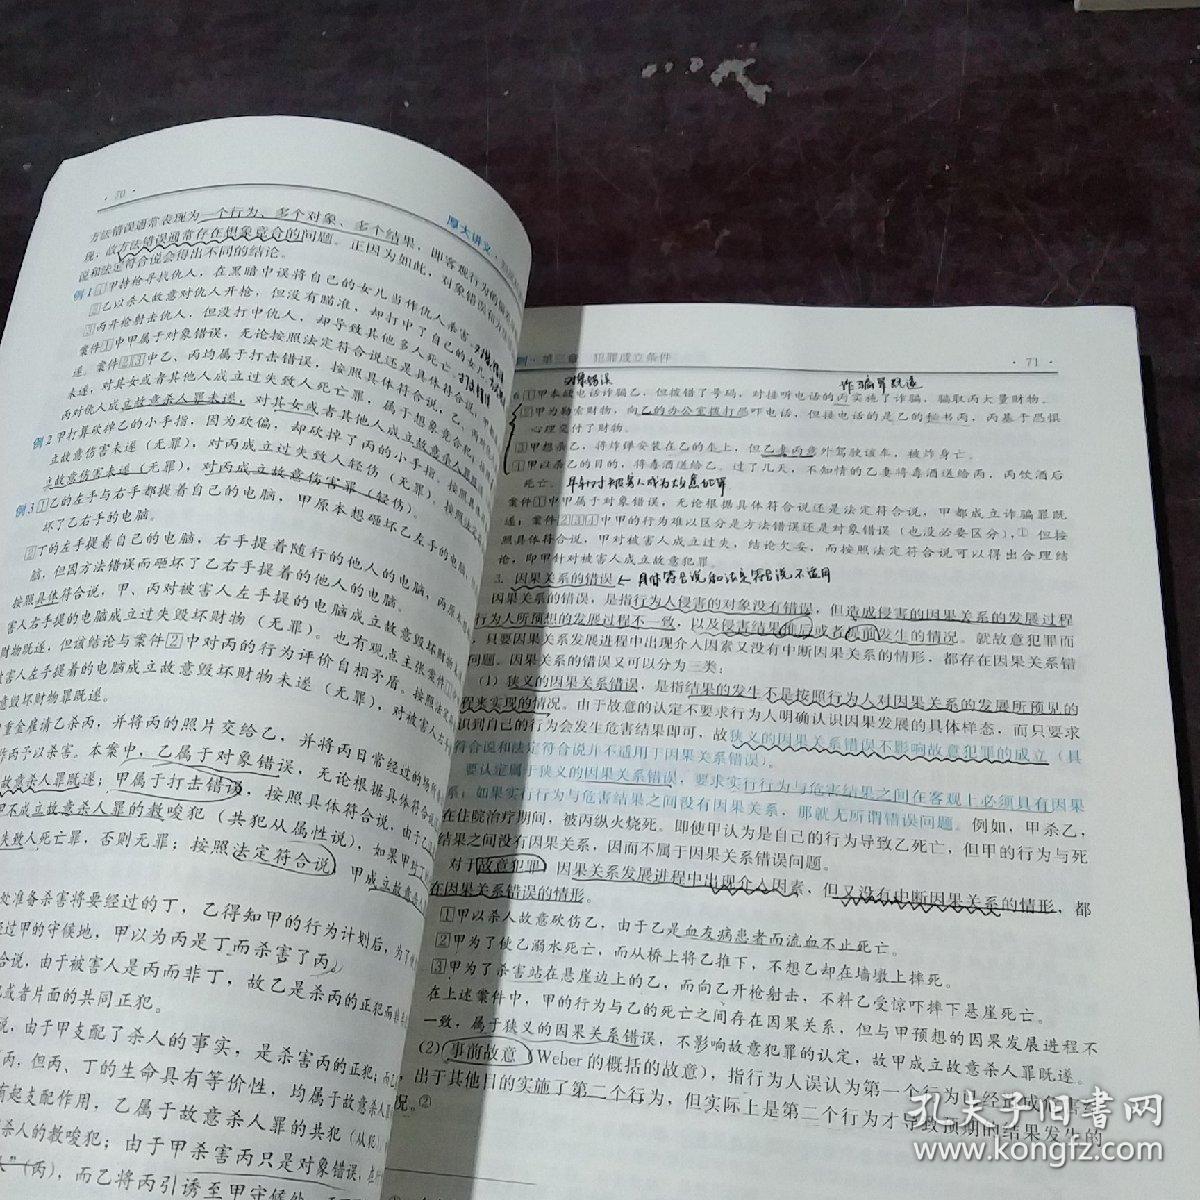 · 70 ·
厚大讲义
方法错误通常表现为一个行为、多个对象、多个结果，即客观行为的
现，故方法错误通常存在想象竞合的问题。正因为如此，对象错误和
说和法定符合说会得出不同的结论。
例1 ①甲持枪寻找仇人，在黑暗中误将自己的女儿当作仇人杀害
②乙以杀人故意对仇人开枪，但没有瞄准，却打中了自己的女儿
③丙开枪射击仇人，但没打中仇人，却导致其他多人死亡
案件①中甲属于对象错误，无论按照法定符合说还是具体符合说，
遂。案件②③中乙、丙均属于打击错误，按照具体符合说，乙、丙
未遂，对其女或者其他人成立过失致人死亡罪，属于想象竞合犯，
丙对仇人成立故意杀人罪未遂，对其女或者其他人成立故意杀人罪
例2 甲打算砍掉乙的小手指，因为砍偏，却砍掉了丙的小手指。按照具
立故意伤害未遂（无罪），对丙成立过失致人轻伤（无罪），按照
立故意伤害未遂（无罪），对丙成立故意伤害罪（轻伤）。
例3 ①乙的左手与右手都提着自己的电脑，甲原本想砸坏乙左手的电脑，
坏了乙右手的电脑。
②丁的左手提着自己的电脑，右手提着随行的他人的电脑，丙原
脑，但因方法错误而砸坏了乙右手提的他人的电脑。
按照具体符合说，甲、丙对被害人左手提的电脑成立故意毁坏财物
害人右手提的电脑成立过失毁坏财物（无罪）。也有观点主张案件①
财物既遂，但该结论与案件②中对丙的行为评价自相矛盾。按照法定
人左手提着的电脑成立故意毁坏财物未遂（无罪），对被害人右手
意毁坏财物罪既遂。
重金雇请乙杀丙，并将丙的照片交给乙，并将丙日常经过的场所
丙予以杀害。本案中，乙属于对象错误，无论根据具体符合说
故意杀人罪既遂；甲属于打击错误，按照具体符合说，由于乙
成立故意杀人罪的教唆犯（共犯从属性说），如果甲
失致人死亡罪，否则无罪；按照法定符合说，甲成立故意杀人
处准备杀害将要经过的丁，乙得知甲的行为计划后，为了
经过甲的守候地，甲以为丙是丁而杀害了丙。
合说，由于被害人是丙而非丁，故乙是杀丙的正犯而
或者片面的共同正犯。
说，由于甲支配了杀人的事实，是杀害丙的正犯；而
丙，但丙、丁的生命具有等价性，均属于故意杀人
有起支配作用，乙属于故意杀人罪的共犯（从犯）
杀人的教唆犯；由于甲杀害丙只是对象错误，
人"（丙），而乙将丙引诱至甲守候处，
例 · 第三章　犯罪成立条件
· 71 ·
对象错误
诈骗罪既遂
①甲本欲电话诈骗乙，但拨错了号码，对接听电话的丙实施了诈骗，骗取丙大量财物。
②甲为勒索财物，向乙的办公室拨打恐吓电话，但接电话的是乙的秘书丙，丙基于恐惧
心理交付了财物。
③甲想杀乙，将炸弹安装在乙的车上，但乙妻丙意外驾驶该车，被炸身亡。
④甲以杀乙的目的，将毒酒送给乙。过了几天，不知情的乙妻将毒酒送给丙，丙饮酒后
死亡。
案件①中甲属于对象错误，无论根据具体符合说还是法定符合说，甲都成立诈骗罪既
遂；案件②③④中甲的行为难以区分是方法错误还是对象错误（也没必要区分），① 但按
照具体符合说，甲对被害人成立过失，结论欠妥，而按照法定符合说可以得出合理结
论，即甲针对被害人成立故意犯罪。
3. 因果关系的错误 ← 具体符合说和法定符合说不适用
因果关系的错误，是指行为人侵害的对象没有错误，但造成侵害的因果关系的发展过程
行为人所预想的发展过程不一致，以及侵害结果推后或者提前发生的情况。就故意犯罪而
只要因果关系发展进程中出现介入因素又没有中断因果关系的情形，都存在因果关系错
问题。因果关系的错误又可以分为三类：
（1）狭义的因果关系错误，是指结果的发生不是按照行为人对因果关系的发展所预见的
程来实现的情况。由于故意的认定不要求行为人明确认识因果发展的具体样态，而只要求
识到自己的行为会发生危害结果即可，故狭义的因果关系错误不影响故意犯罪的成立（具
符合说和法定符合说并不适用于因果关系错误）。
要认定属于狭义的因果关系错误，要求实行行为与危害结果之间在客观上必须具有因果
系；如果实行行为与危害结果之间没有因果关系，那就无所谓错误问题。例如，甲杀乙，
在住院治疗期间，被丙纵火烧死。即使甲认为是自己的行为导致乙死亡，但甲的行为与死
结果之间没有因果关系，因而不属于因果关系错误问题。
对于故意犯罪，因果关系发展进程中出现介入因素，但又没有中断因果关系的情形，都
在因果关系错误的情形。
①甲以杀人故意砍伤乙，由于乙是血友病患者而流血不止死亡。
②甲为了使乙溺水死亡，而从桥上将乙推下，不想乙却在墙墩上摔死。
③甲为了杀害站在悬崖边上的乙，而向乙开枪射击，不料乙受惊吓摔下悬崖死亡。
在上述案件中，甲的行为与乙的死亡之间存在因果关系，但与甲预想的因果发展进程不
一致，属于狭义的因果关系错误，不影响故意犯罪的认定，故甲成立故意杀人罪既遂。
(2) 事前故意（Weber的概括的故意），指行为人误认为第一个行为已经造成危害
出于其他目的实施了第二个行为，但实际上是第二个行为才导致预期的结果发生的
况。②
孔夫子旧书网
www.kongfz.com